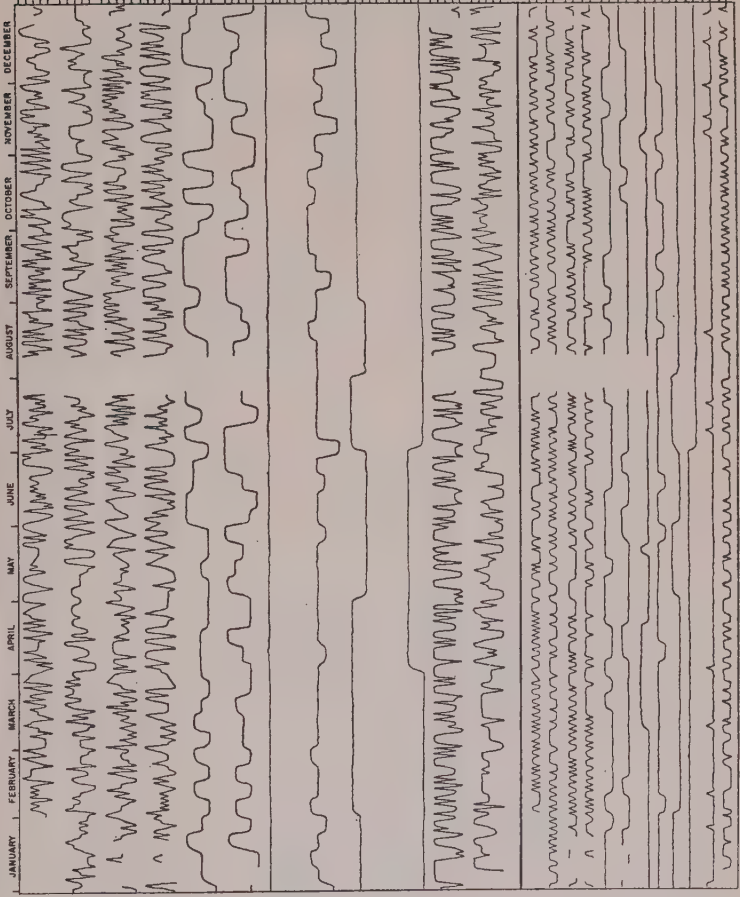 JANUARY FEBRUARY MARCH APRIL MAY JUNE JULY AUGUST SEPTEMBER OCTOBER NOVEMBER DECEMBER